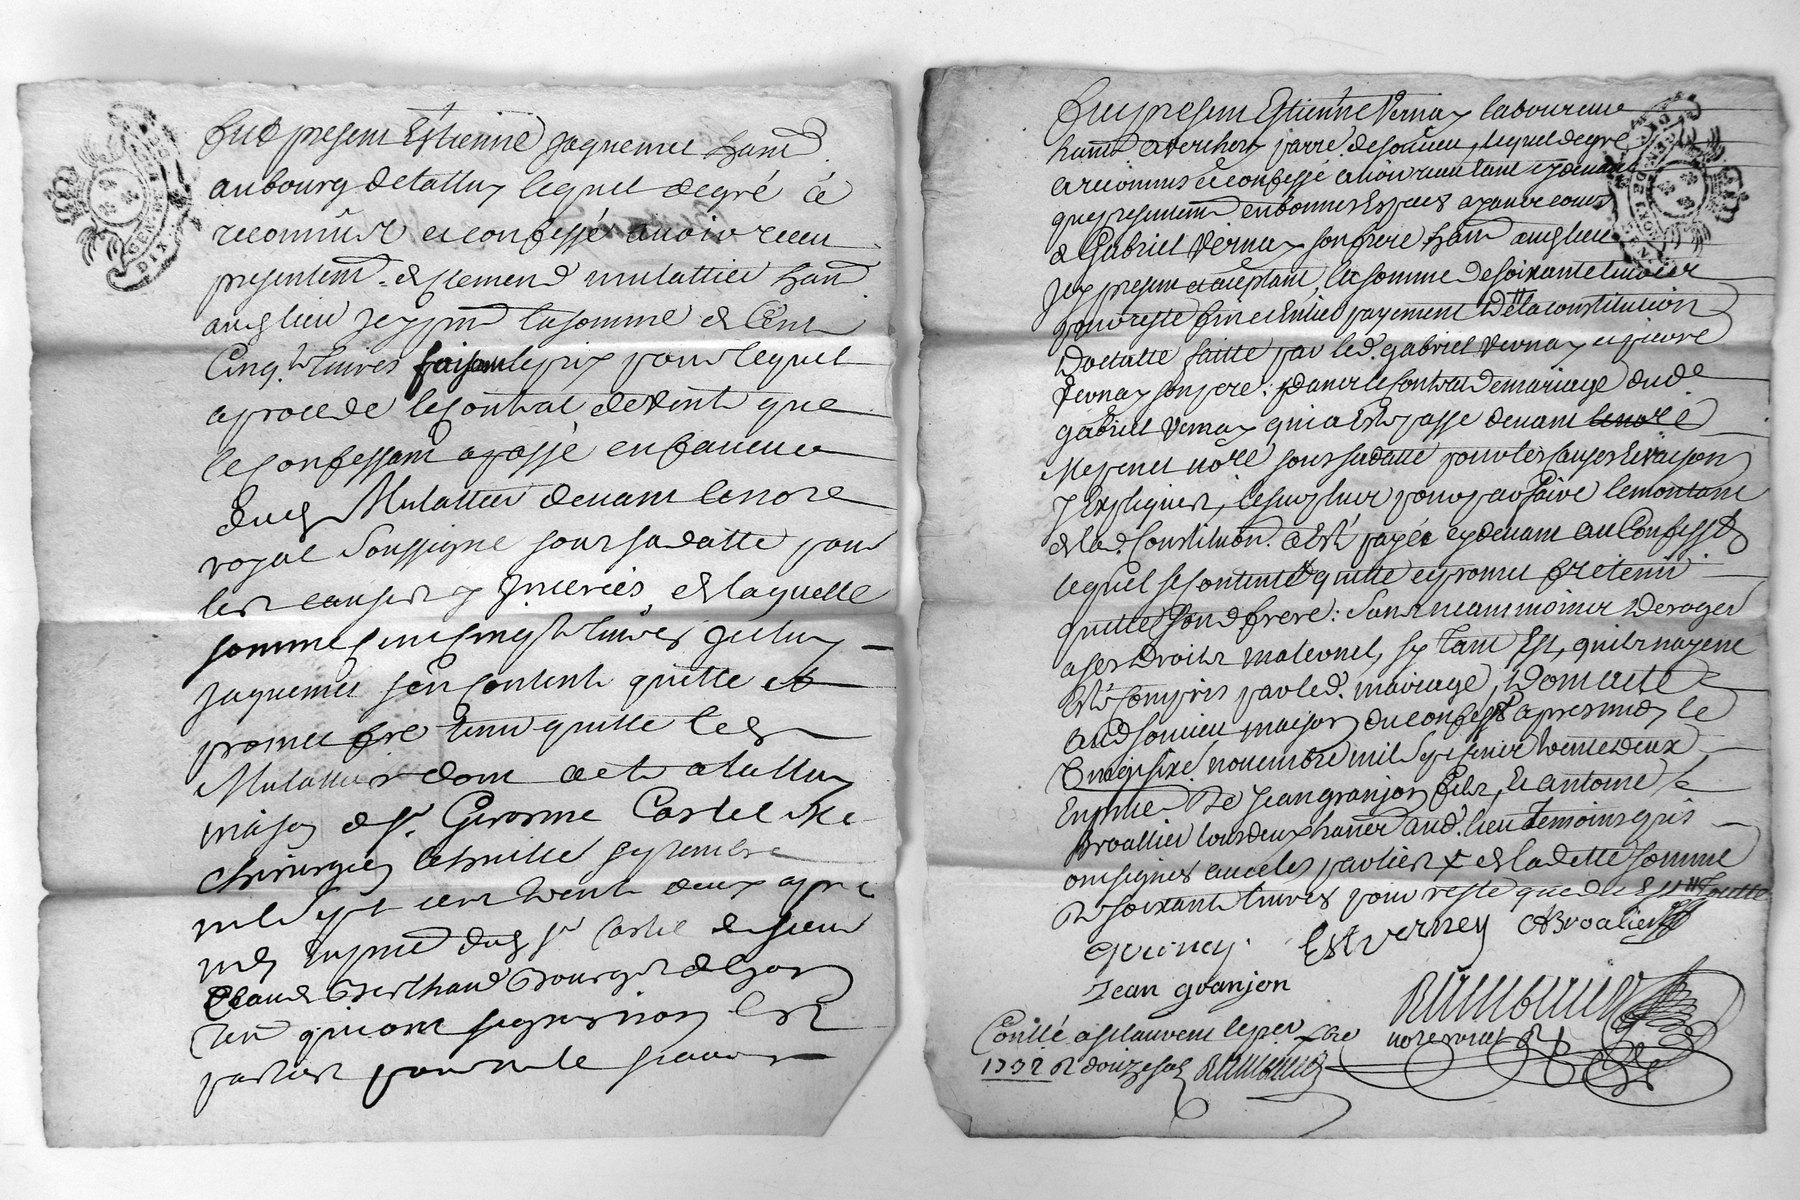 fut present Estienne Jaquemet habt
au bourg de talluy lequel de gré a
reconnu et confessé avoir receu
presentemt de Clement mulattier habt
aud lieu icy pnt la somme de Cent
Cinqte livres faisant le prix pour lequel
a procedé le contrat de vente que
le confessant a passé en faveur
dud Mulattier devant le nore
royal soussigné sous sa datte pour
les causes y inserées de laquelle
somme de cent cinqte livres ledit
Jaquemet s'en contente quitte et
promet fre tenir quitte led
Mulattier dont acte a talluy
maison de sr Gerosme Castel Me
chirurgien le huitte septembre
mil sept cent trente deux apres
midy en pnce dud sr Castel de sieur
Claude Berthaud Bourgeois de Lyon
qui ont signé non les
parties pour ne le scavoir
DIX DEN
GEN DE LYON
fut present Estienne Vernay laboureur
habt a verchery parre de soucieu, lequel de gré
a reconnus et confessé avoir receu tant cy devant
que presentemt en bonnes Especes ayant cours
de Gabriel Vernay son frere habt aud lieu
icy present et acceptant, la somme de soixante livres
pour reste fin et entier payement de la constitution
dotatte faitte par led. gabriel Vernay et pierre
Vernay son pere: dans le contrat de mariage dud
gabriel Vernay qui a esté passé devant le nore
Me penet nore sous sa datte pour les causes et raisons
y Expliquées, le surplus pour parfaire le montant
de lad. Constituon. a esté payée cy devant au Confesst
lequel se contente quitte et promet fre tenir
quitte sond frere: sans neanmoins deroger
a ses droits maternel, sy tant Est, qu'ils n'ayent
esté compris par led. mariage, Dont acte
aud soucieu maison du confesst apres midy le
vingt sixe novembre mil sept cent trente deux
En pnce de Jean granjon fils, et antoine
Broallier tous deux habts aud. lieu temoins requis
ont signés avec les parties de ladette somme
de soixante livres pour reste que de
G Verney. Est verney ABroalier
Jean granjon
Rambaud
nore royal
Conllé a st laurent le per xbre
1732 R douze sols Rambaud